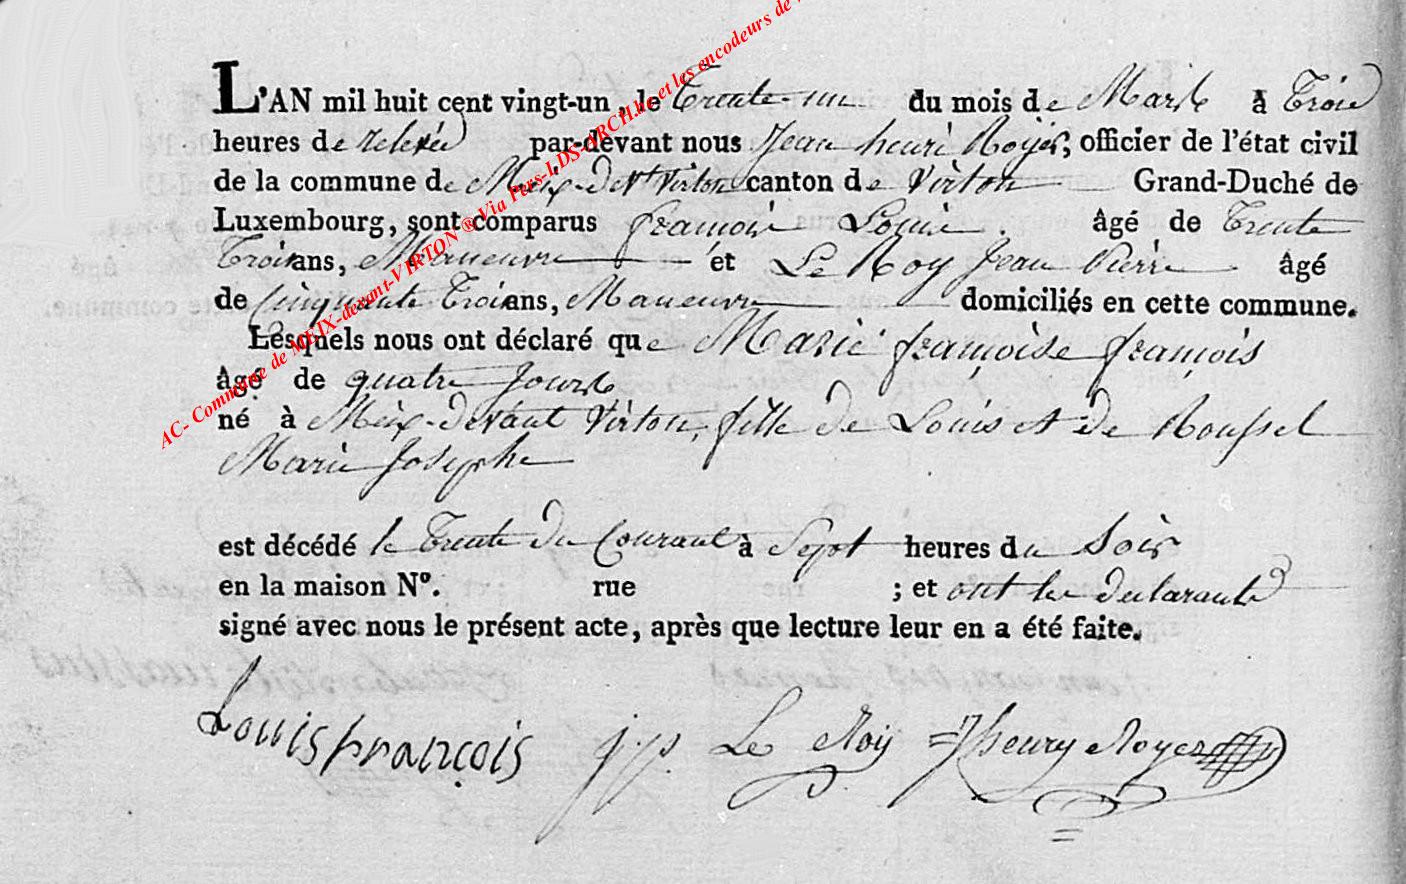 L'AN mil huit cent vingt-un, le Trente-un du mois de Mars à Trois
heures de relevée par-devant nous Jean henri Royer, officier de l'état civil
de la commune de Meix-devt Virton canton de Virton Grand-Duché de
Luxembourg, sont comparus françois Louis. âgé de Trente
Trois ans, Maneuvre et Le Roy Jean Pierre âgé
de Cinquante Trois ans, Maneuvre domiciliés en cette commune.
Lesquels nous ont déclaré que Marie françoise françois
âgé de quatre Jours
né à Meix-devant Virton, fille de Louis et de Roussel
Marie Josephe
est décédé le Trente du Courant à Sept heures du Soir
en la maison N°. rue ; et ont les declarants
signé avec nous le présent acte, après que lecture leur en a été faite.
Louis françois j p Le Roy Jhenry Royer
AC- Commune de MEIX-devant-VIRTON ® Via Pers-LDS-ARCH.be et les encodeurs de